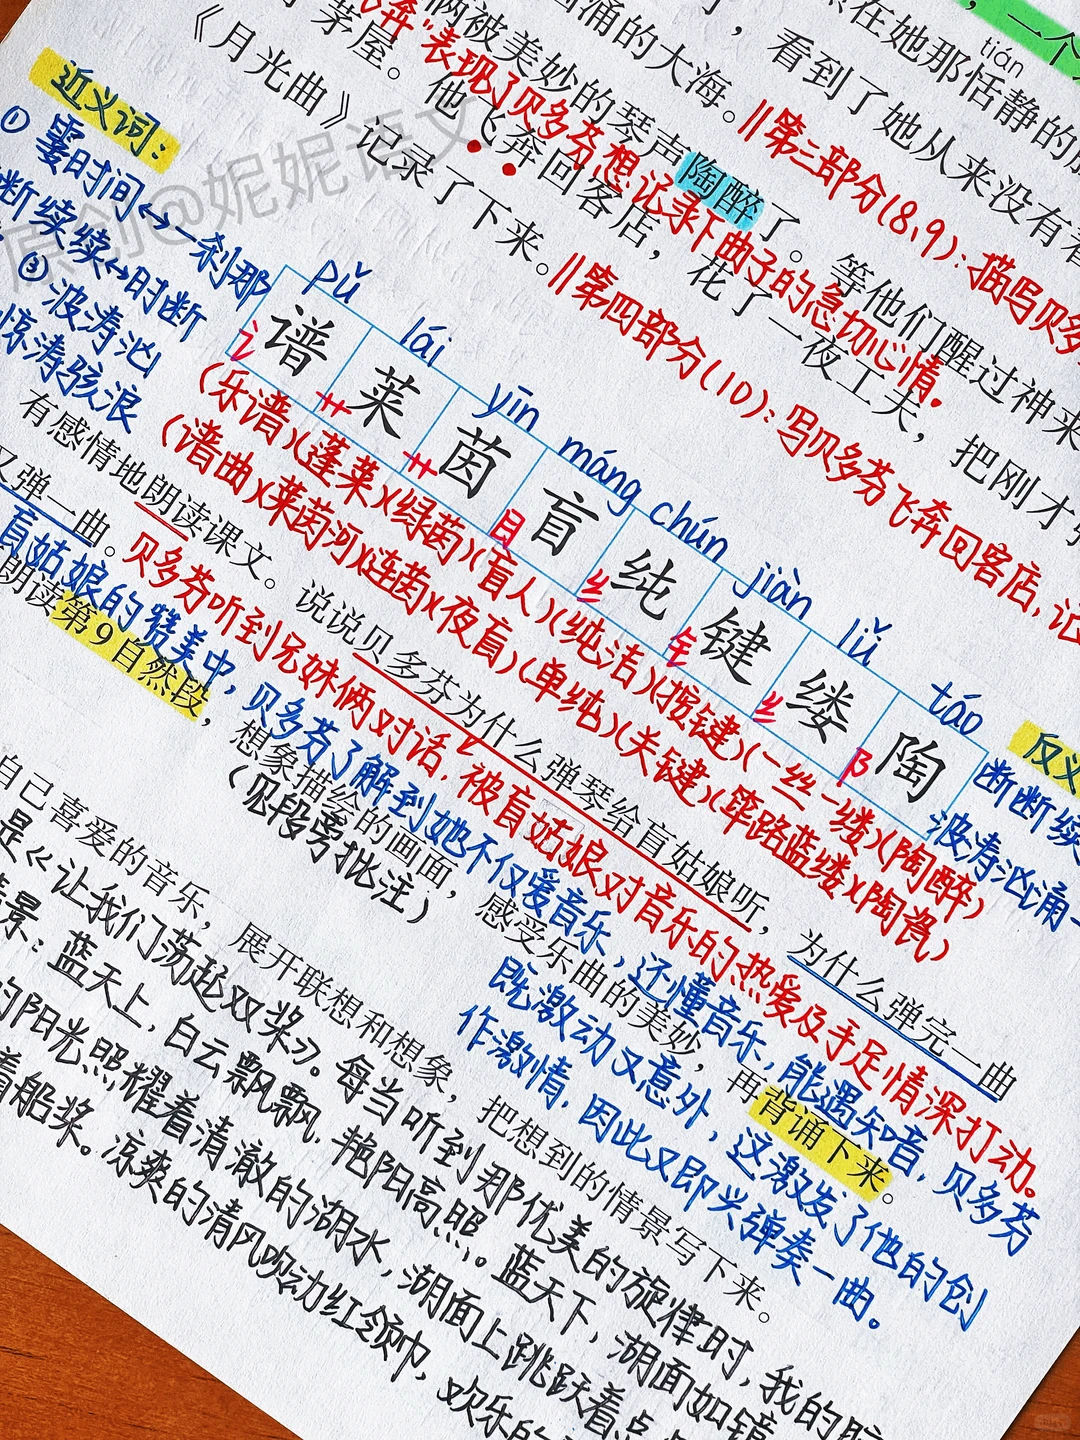 ，一个
在她那恬静的
tián
，看到了她从来没有看
涌的大海。||第三部分(8,9):描写贝多
俩被美妙的琴声陶醉了。等他们醒过神来
奔"表现了贝多芬想记录下曲子的急切心情。
茅屋。他飞奔回客店，花了一夜工夫，把刚才
《月光曲》记录了下来。||第四部分(10):写贝多芬飞奔回客店,记
原创@妮妮语文
近义词:
① 霎时间↔一刹那
断续续↔时断
③ 波涛汹
惊涛骇浪
pǔ lái yīn máng chún jiàn lǚ táo
谱 莱 茵 盲 纯 键 缕 陶
讠 艹 艹 目 纟 钅 纟 阝
(乐谱)(蓬莱)(绿茵)(盲人)(纯洁)(按键)(一丝一缕)(陶醉)
(谱曲)(莱茵河)(连茵)(夜盲)(单纯)(关键)(筚路蓝缕)(陶瓷)
反义
断断续
波涛汹涌
有感情地朗读课文。说说贝多芬为什么弹琴给盲姑娘听，为什么弹完一曲
又弹一曲。贝多芬听到兄妹俩对话,被盲姑娘对音乐的热爱及手足情深打动。
盲姑娘的赞美中,贝多芬了解到她不仅爱音乐,还懂音乐,能遇知音,贝多芬
朗读第9自然段，想象描绘的画面，感受乐曲的美妙，再背诵下来。
(见段旁批注)
既激动又意外,这激发了他的创
作激情,因此又即兴弹奏一曲。
自己喜爱的音乐，展开联想和想象，把想到的情景写下来。
是《让我们荡起双桨》。每当听到那优美的旋律时,我的脑
景:蓝天上,白云飘飘,艳阳高照。蓝天下,湖面如镜
的阳光照耀着清澈的湖水,湖面上跳跃着点
着船桨。凉爽的清风吹动红领巾,欢乐的